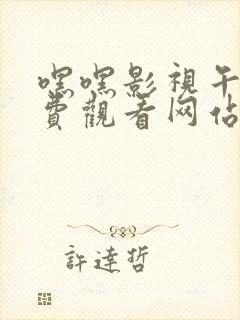 嘿嘿影視午
費觀看网佔
許達哲